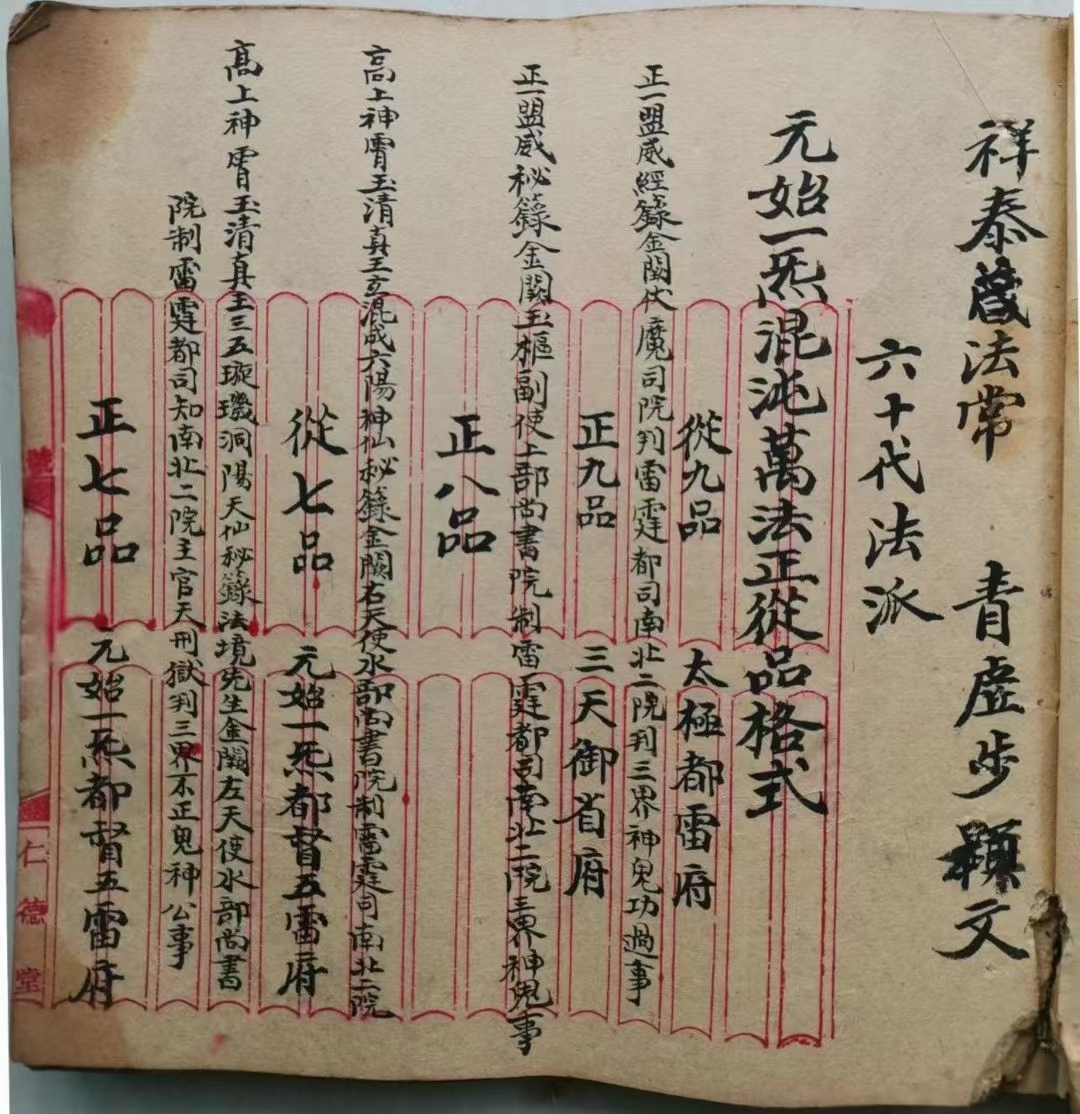 祥泰蕆法常 青虛步穎文
六十代法派
元始一炁混沌萬法正從品格式
從九品 太極都雷府
正一盟威經籙金闕伏魔司院判雷霆都司南北二院判三界神鬼功過事
正九品 三天御省府
正一盟威秘籙金闕玉樞副使上部尚書院制雷霆都司南北二院三界神鬼事
正八品
高上神霄玉清真王玄混成六陽神仙秘籙金闕右天使水部尚書院制雷霆司南北二院
從七品 元始一炁都督五雷府
高上神霄玉清真王三五璇璣洞陽天仙秘籙法境先生金闕左天使水部尚書
院制雷霆都司知南北二院主官天刑獄判三界不正鬼神公事
正七品 元始一炁都督五雷府
仁德堂